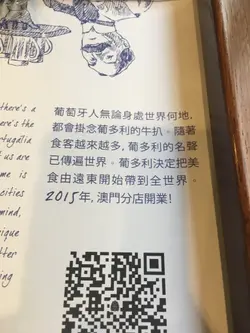 葡萄牙人無論身處世界何地,
都會掛念葡多利的牛扒。隨著
食客越來越多, 葡多利的名聲
已傳遍世界。葡多利決定把美
食由遠東開始帶到全世界。
2015年, 澳門分店開業!
there's a
ere's the
us are
me is
cities
mind,
ique
tter
ing